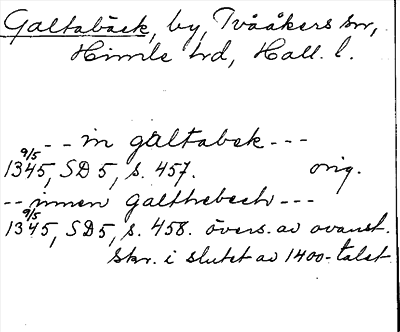 Galtabäck, by, Tvååkers sn,
Himle hd, Hall. l.
-- in galtabek ---
9/5 1345, SD 5, s. 457. orig.
-- innen galthebech ---
9/5 1345, SD 5, s. 458. övers. av ovanst.
skr. i slutet av 1400-talet